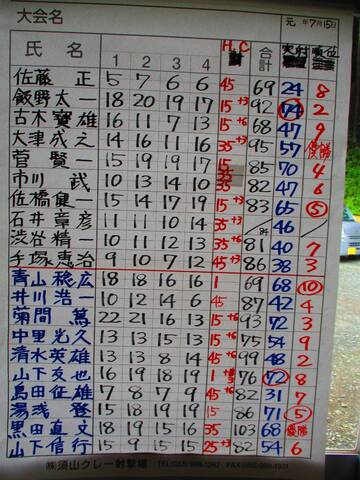 大会名
元年7月15日
氏名 1 2 3 4 H,C 合計 実射 順位
佐藤 正 5 7 6 6 45 69 24 8
飯野太一 18 20 19 17 15+3 92 74 2
古木寶雄 16 11 7 13 15+6 68 47 9
大津成之 14 16 11 16 35+3 95 57 優勝
菅 賢一 15 19 19 17 15 85 70 4
市川 武 10 13 14 10 35 82 47 6
佐橋健一 15 14 17 19 15+3 83 65 5
石井章彦 11 11 10 14 35+3 84 46
渋谷精一 10 13 7 10 35+6 81 40 7
手塚恵治 9 10 7 12 45+3 86 38 3
青山稔広 18 18 16 16 1 69 68 10
井川浩一 10 12 14 6 45 87 42 4
菊間 篤 22 21 16 13 15+6 93 72 3
中里光久 13 13 15 13 15+6 75 54 9
清水英雄 13 13 8 14 45+6 99 48 2
山下友也 16 19 18 19 1+3 76 72 8
島田征雄 7 9 8 7 45+6 82 31 7
湯浅 登 15 18 19 19 15 86 71 5
黒田直文 18 15 20 15 35 103 68 優勝
山下信行 9 15 15 15 25+3 82 54 6
㈱須山クレー射撃場